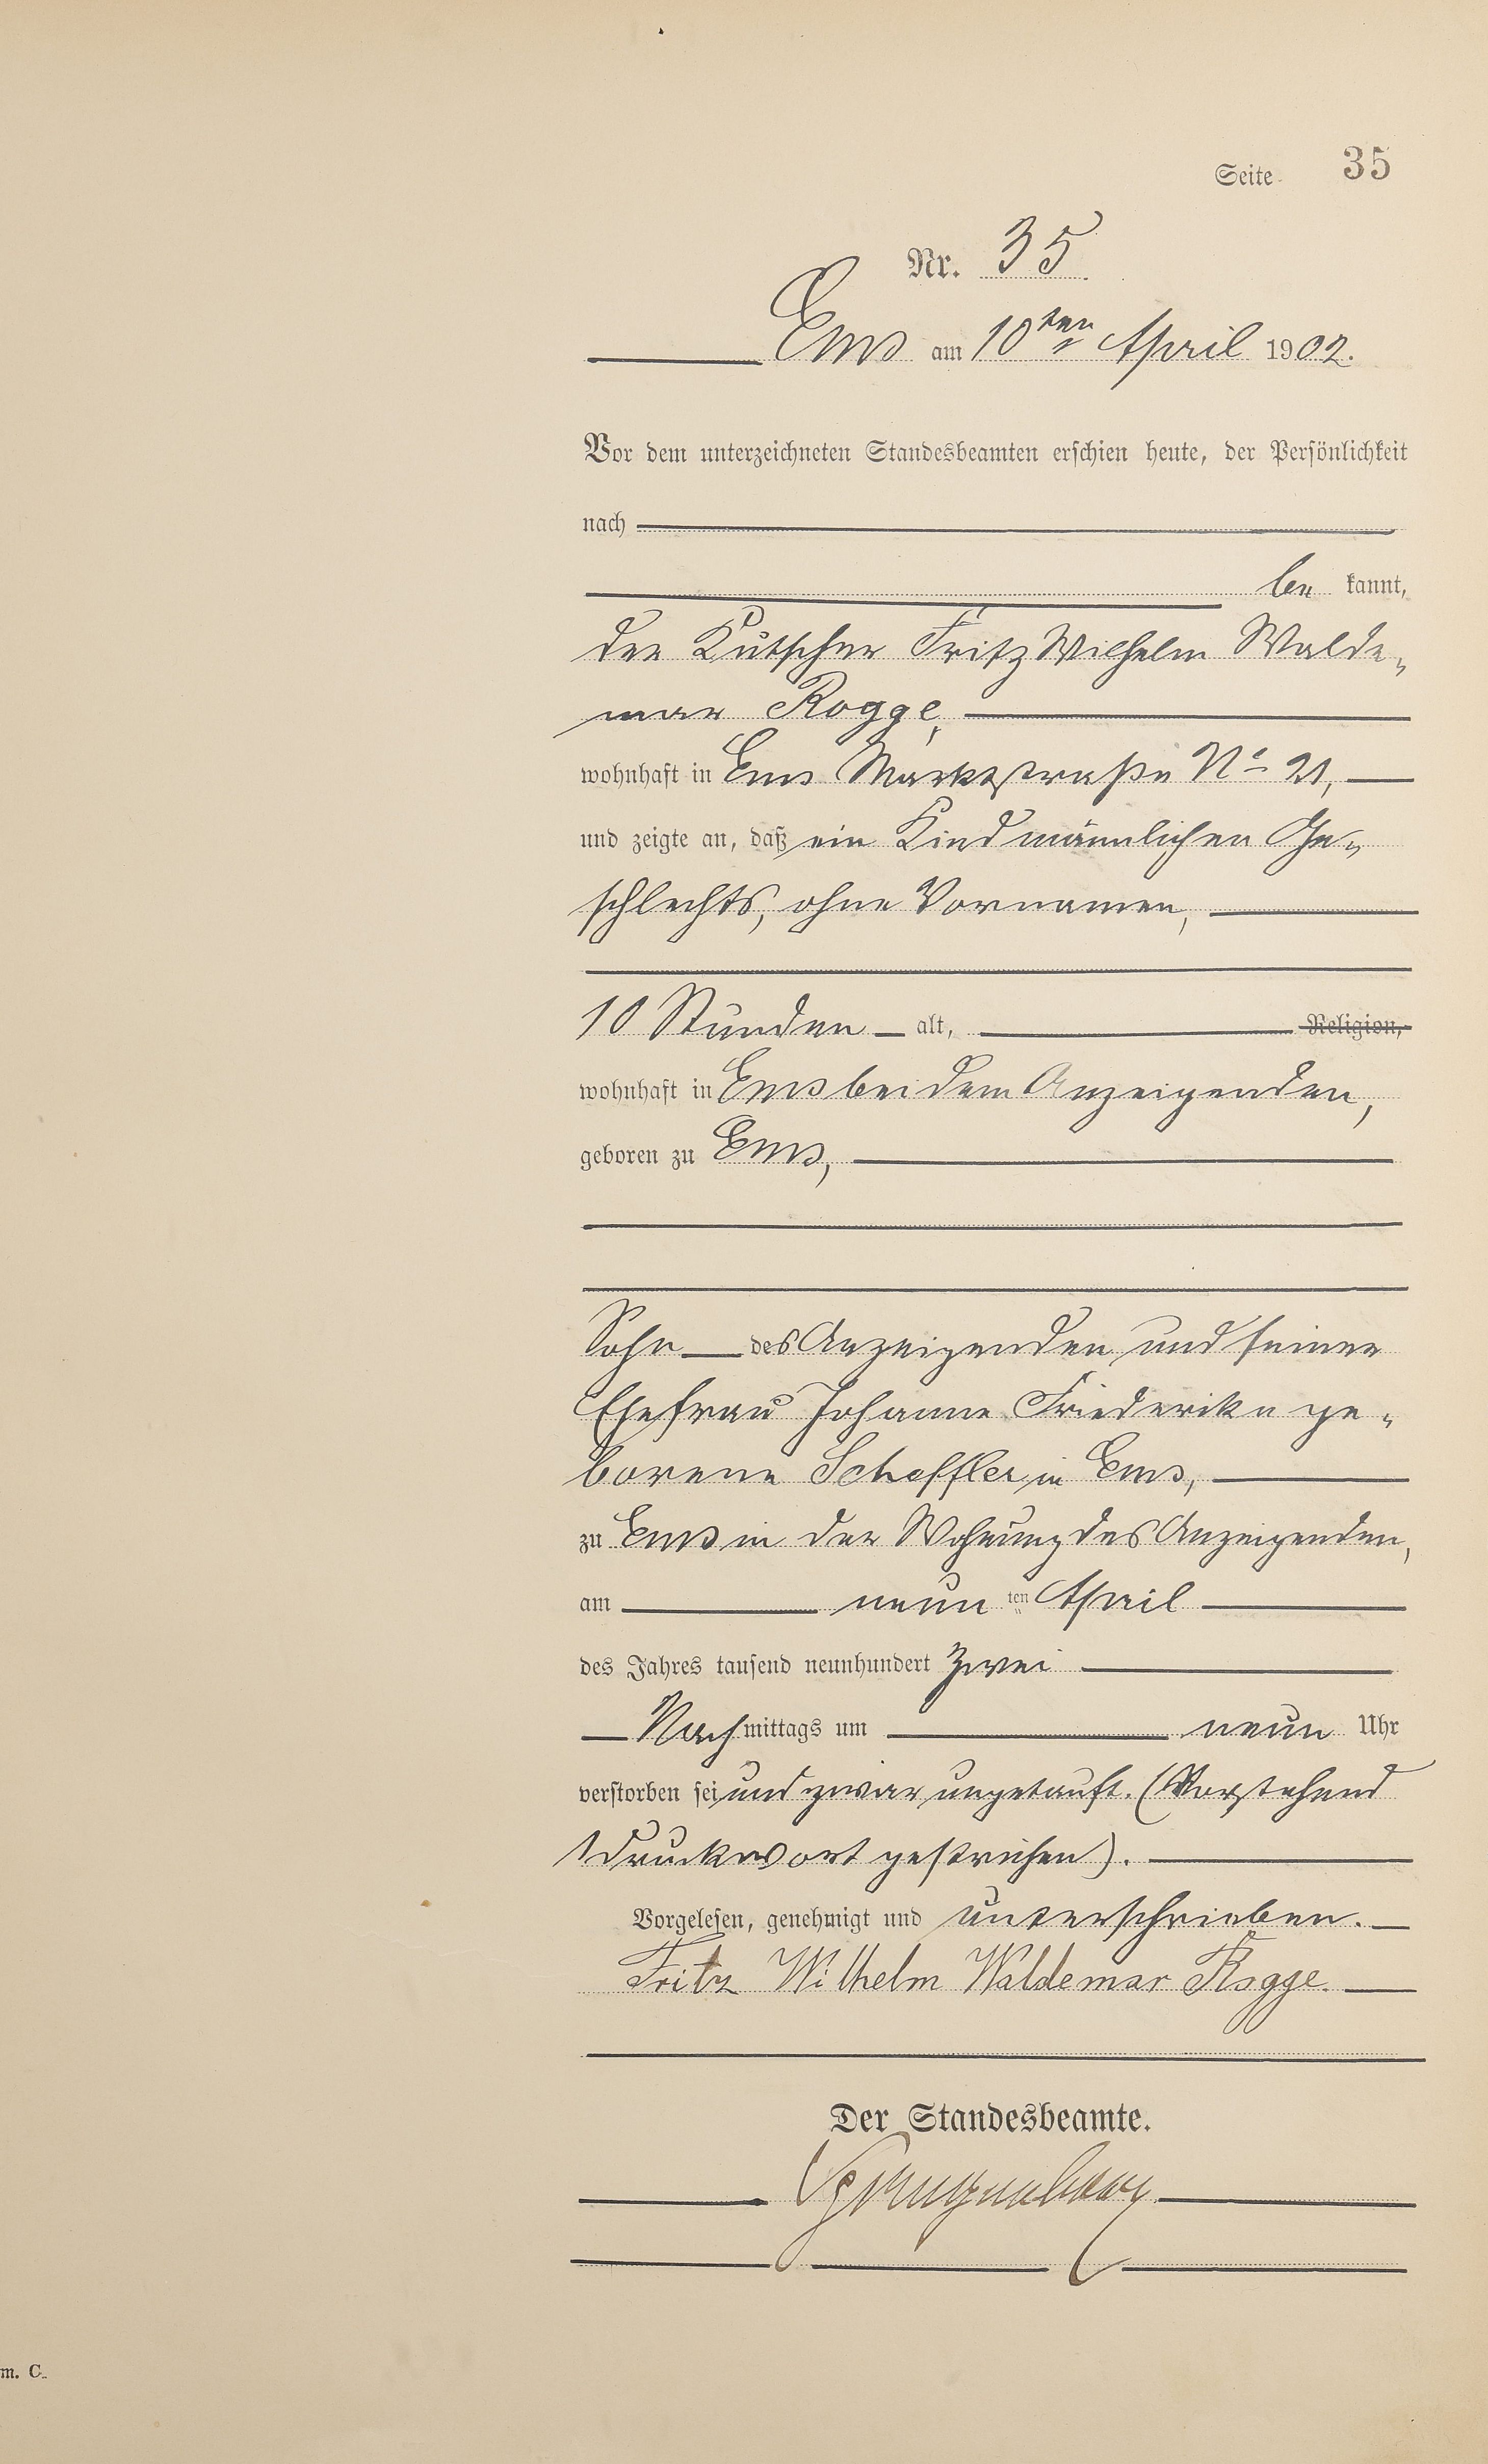 Seite 35
Nr. 35
Ems am 10ten April 1902.
Vor dem unterzeichneten Standesbeamten erschien heute, der Persönlichkeit
nach
be kannt,
der Kutscher Fritz Wilhelm Walde-
mar Rogge,
wohnhaft in Ems Marktstraße No 21,
und zeigte an, daß ein Kind männlichen Ge-
schlechts, ohne Vornamen,
10 Stunden alt, Religion,
wohnhaft in Ems bei dem Anzeigenden,
geboren zu Ems,
Sohn des Anzeigenden und seiner
Ehefrau Johanne Friederike ge-
borene Scheffler in Ems,
zu Ems in der Wohnung des Anzeigenden,
am neun ten April
des Jahres tausend neunhundert zwei
Nach mittags um neun Uhr
verstorben sei und zwar ungetauft. (Vorstehend
1 Druckwort gestrichen).
Vorgelesen, genehmigt und unterschrieben.
Fritz Wilhelm Waldemar Rogge.
Der Standesbeamte.
m. C.